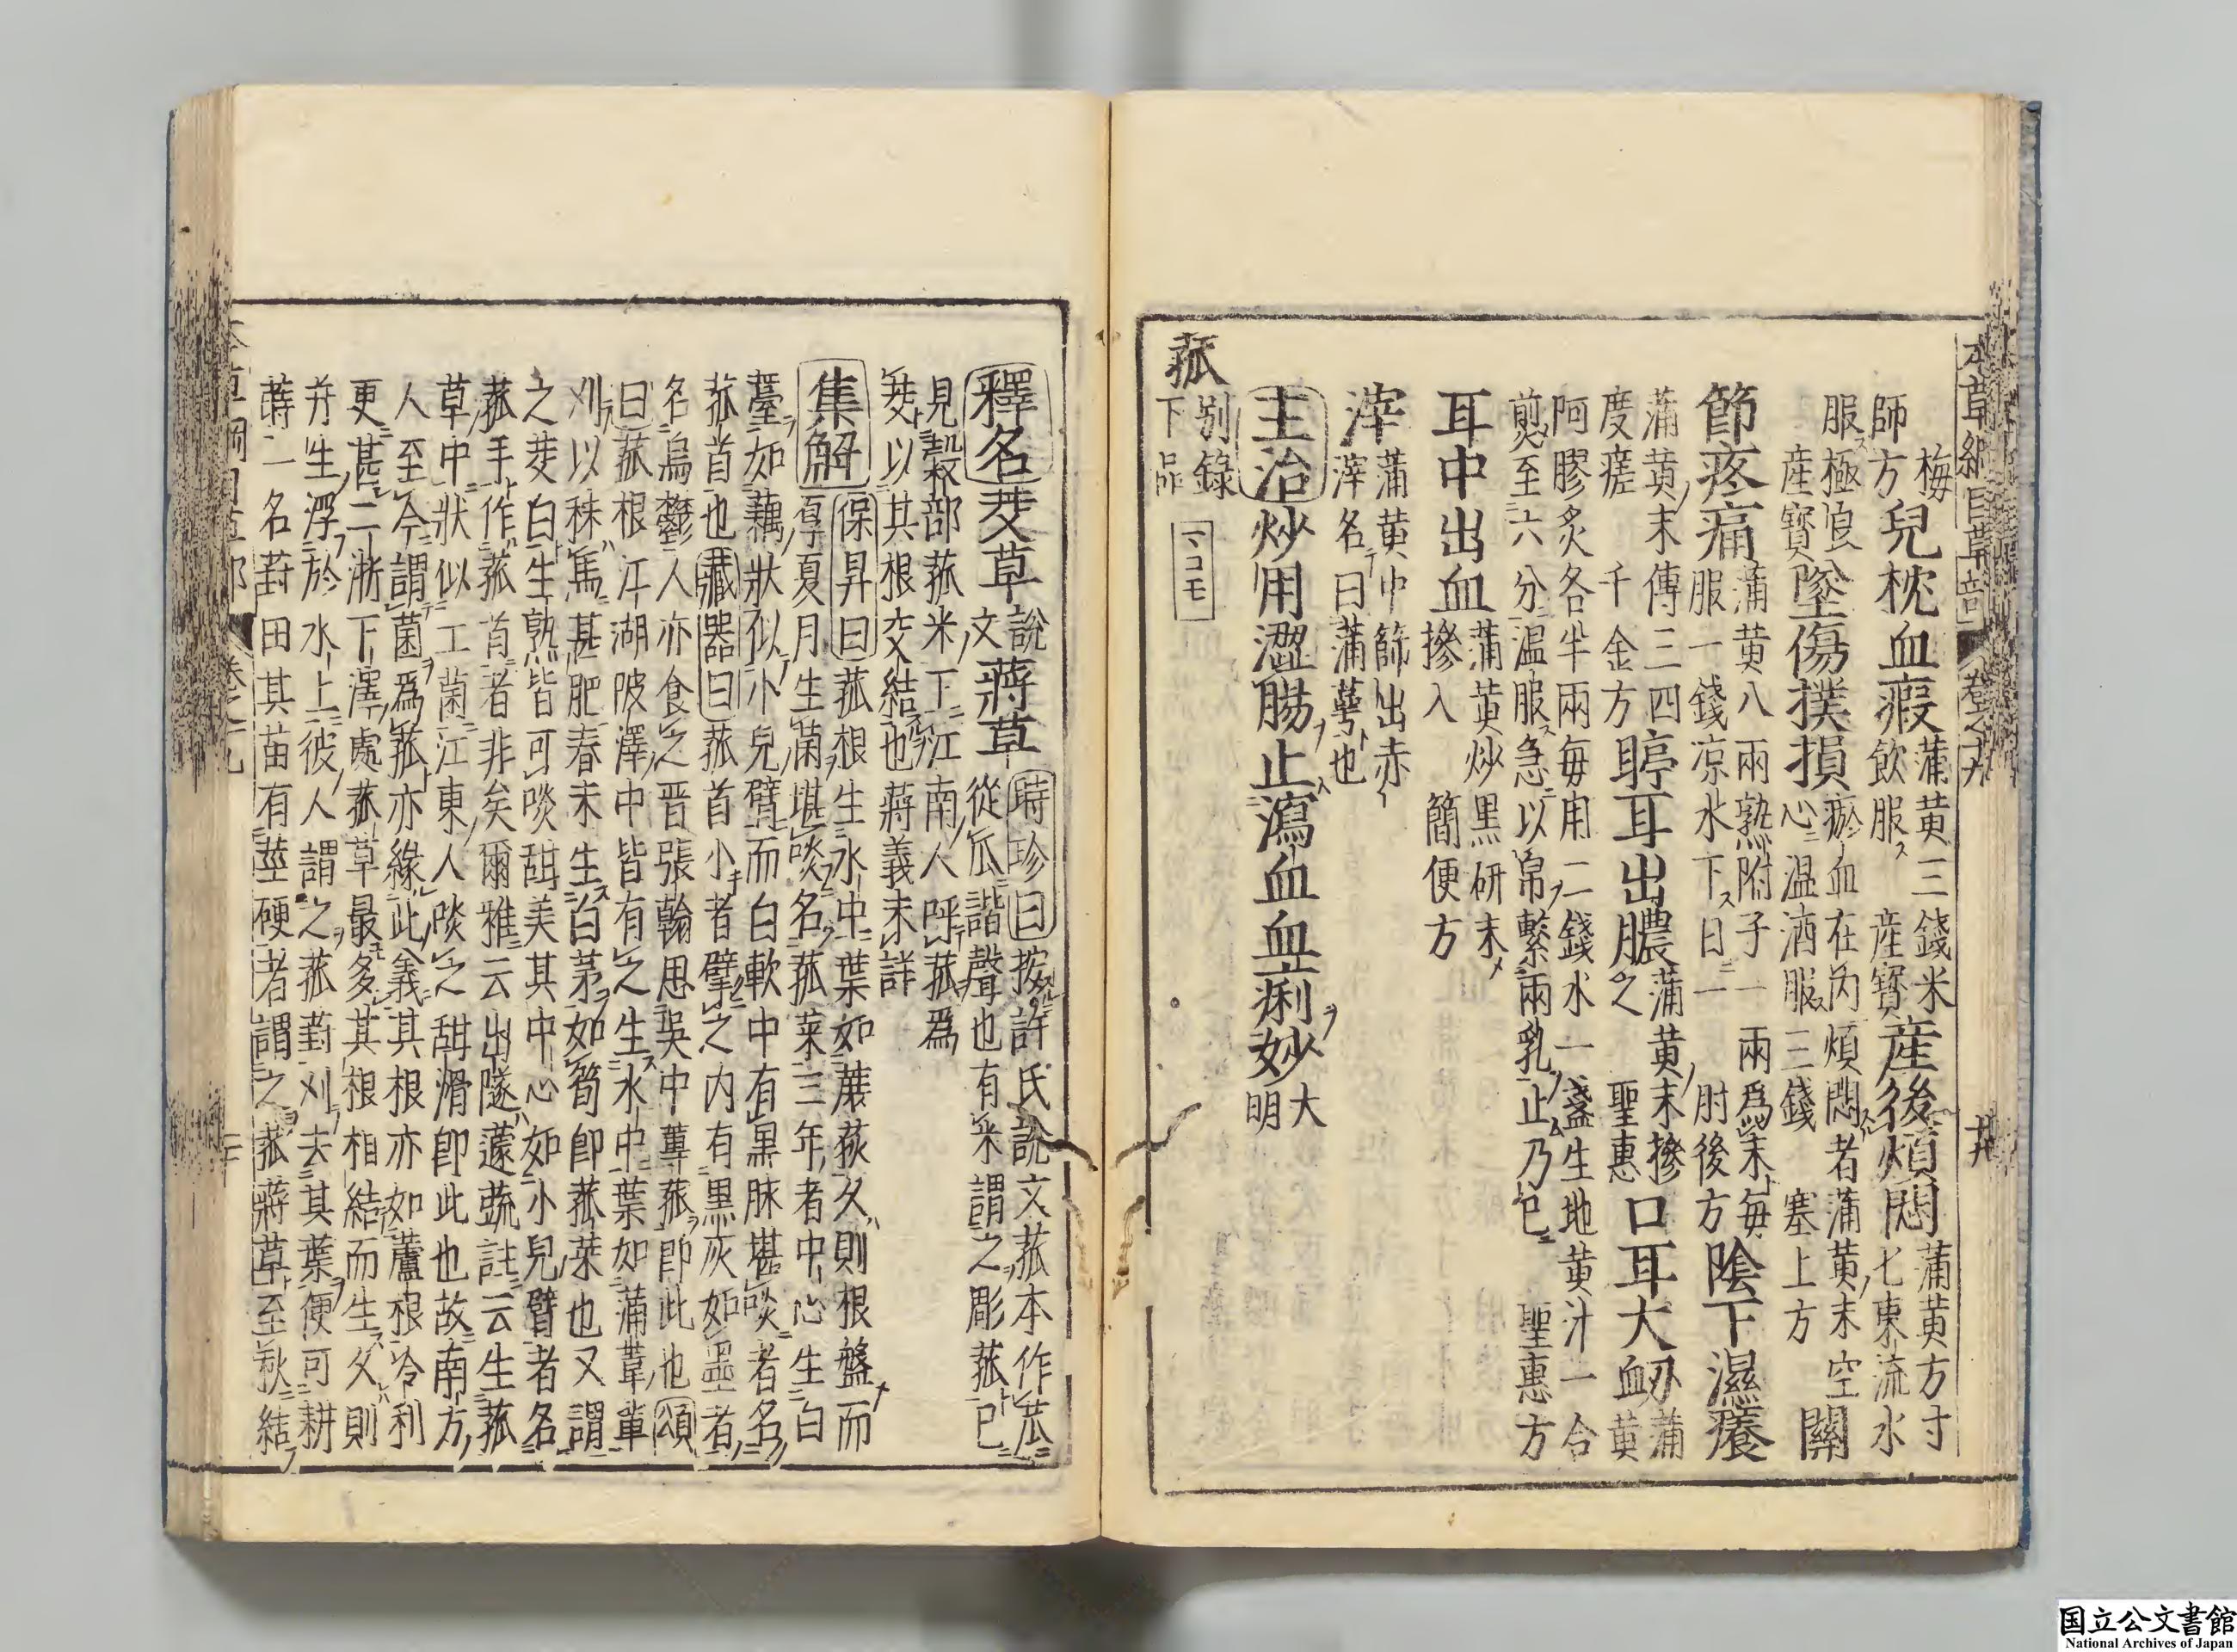 本草綱目草部 卷之十九 廿九
梅師方 兒枕血瘕 蒲黃三錢米飲服 產寶 產後煩悶 蒲黃方寸匕東流水
服極良 產寶 墜傷撲損 瘀血在內煩悶者蒲黃末空心溫酒服三錢 塞上方 關
節疼痛 蒲黃八兩熟附子一兩爲末每服一錢凉水下日一 肘後方 陰下濕癢
蒲黃末傅三四度瘥 千金方 聤耳出膿 蒲黃末摻之 聖惠 口耳大衄 蒲黃
阿膠炙各半兩每用二錢水一盞生地黃汁一合煎至六分溫服急以帛繫兩乳止乃已 聖惠方
耳中出血 蒲黃炒黑研末摻入 簡便方
滓 蒲黃中篩出赤滓名曰蒲萼也
主治炒用澀腸止瀉血血痢妙 大明
菰 別錄下品 マコモ
釋名 茭草 說文 蔣草 時珍曰按許氏說文菰本作苽從瓜諧聲也有米謂之彫菰已
見穀部菰米下江南人呼菰爲
茭以其根交結也蔣義未詳
集解 保昇曰菰根生水中葉如蔗荻久則根盤而厚夏月生菌堪啖名菰菜三年者中心生白
薹如藕狀似小兒臂而白軟中有黑脉堪啖者名
菰首也藏器曰菰首小者擘之內有黑灰如墨者
名烏鬱人亦食之晉張翰思吳中蓴菰即此也頌
曰菰根江湖陂澤中皆有之生水中葉如蒲葦輩
刈以秣馬甚肥春末生白茅如筍即菰菜也又謂
之茭白生熟皆可啖甜美其中心如小兒臂者名
菰手作菰首者非矣爾雅云出隧蘧蔬註云生菰
草中狀似土菌江東人啖之甜滑即此也故南方
人至今謂菌爲菰亦緣此義其根亦如蘆根冷利
更甚二浙下澤處菰草最多其根相結而生久則
并生浮於水上彼人謂之菰葑刈去其葉便可耕
蒔一名葑田其苗有莖硬者謂之菰蔣草至秋結